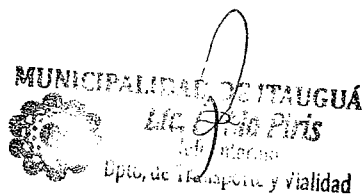 MUNICIPALIDAD DE ITAUGUÁ
Lic. Piris
Dpto, de Transporte y Vialidad